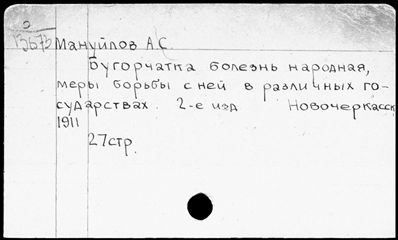 Мануйлов А.С.
Бугорчатка болезнь народная,
меры борьбы с ней в различных го-
сударствах. 2-е изд Новочеркасск
1911
27стр.